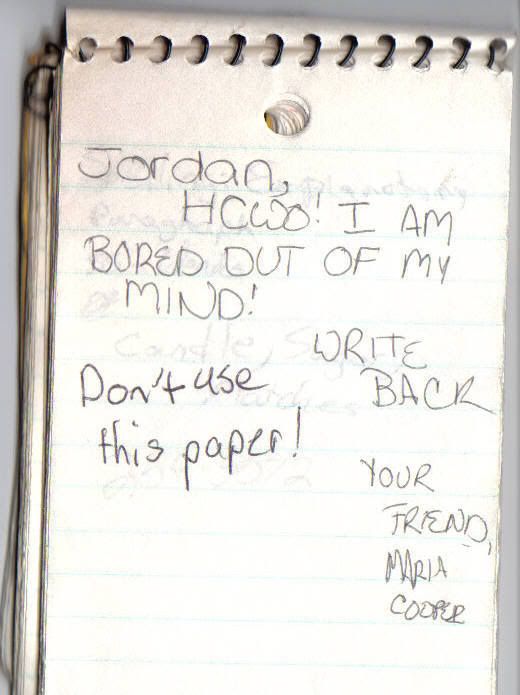 Jordan,
HCWO! I AM
BORED OUT OF MY
MIND!
WRITE
BACK
Don't use
this paper!
YOUR
FRIEND,
MARIA
COOPER
Candle,